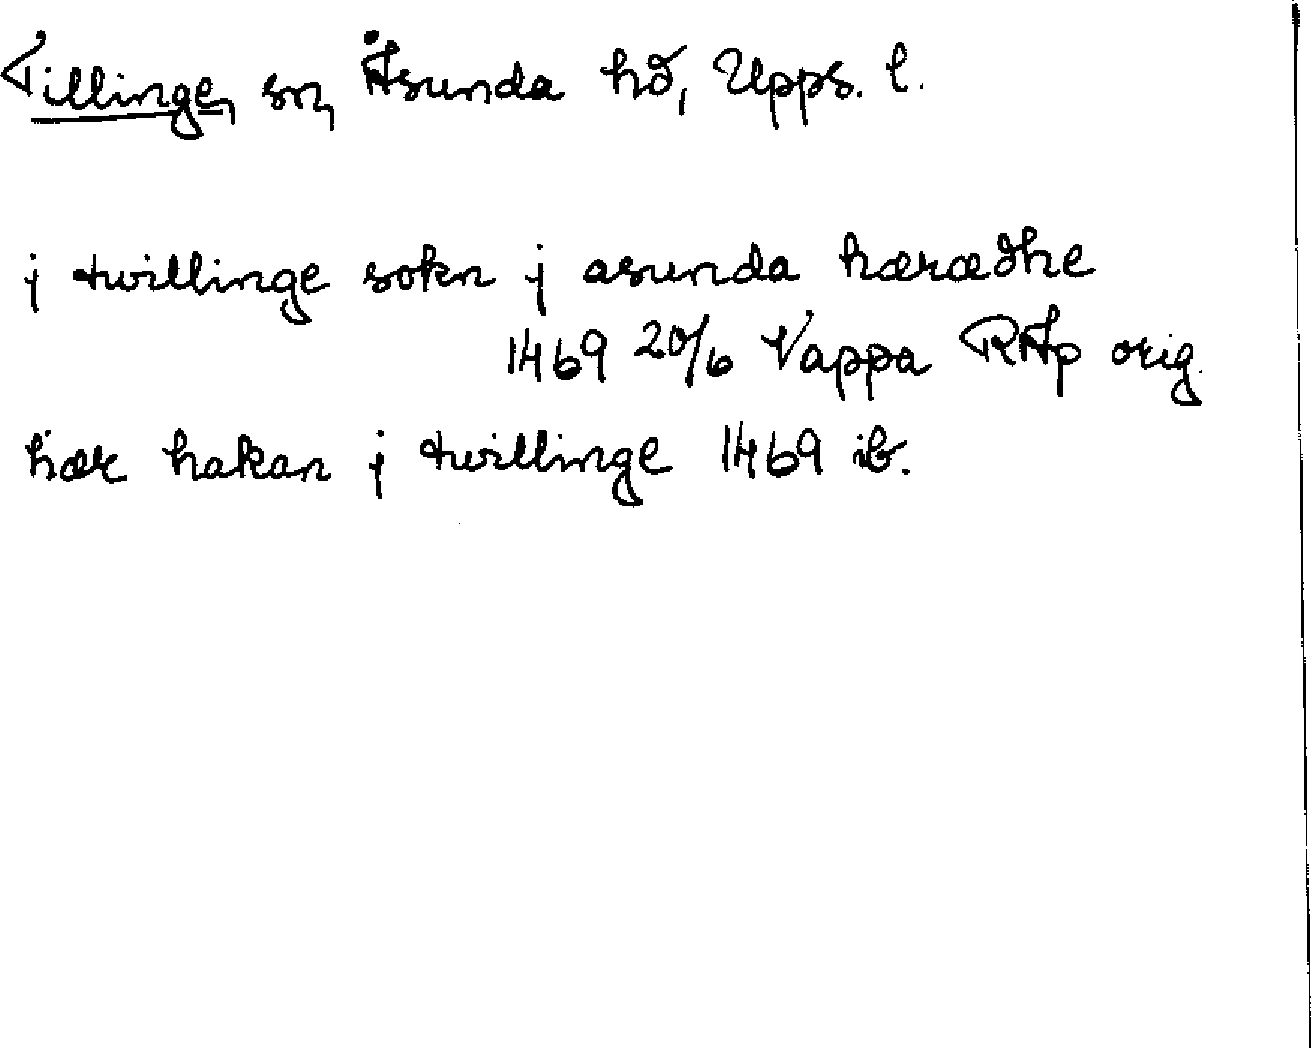 Tillinge, sn, Åsunda hd, Upps. l.
j twillinge sokn j asunda hærædhe
1469 20/6 Vappa RAp orig.
hær hakan j twillinge 1469 ib.